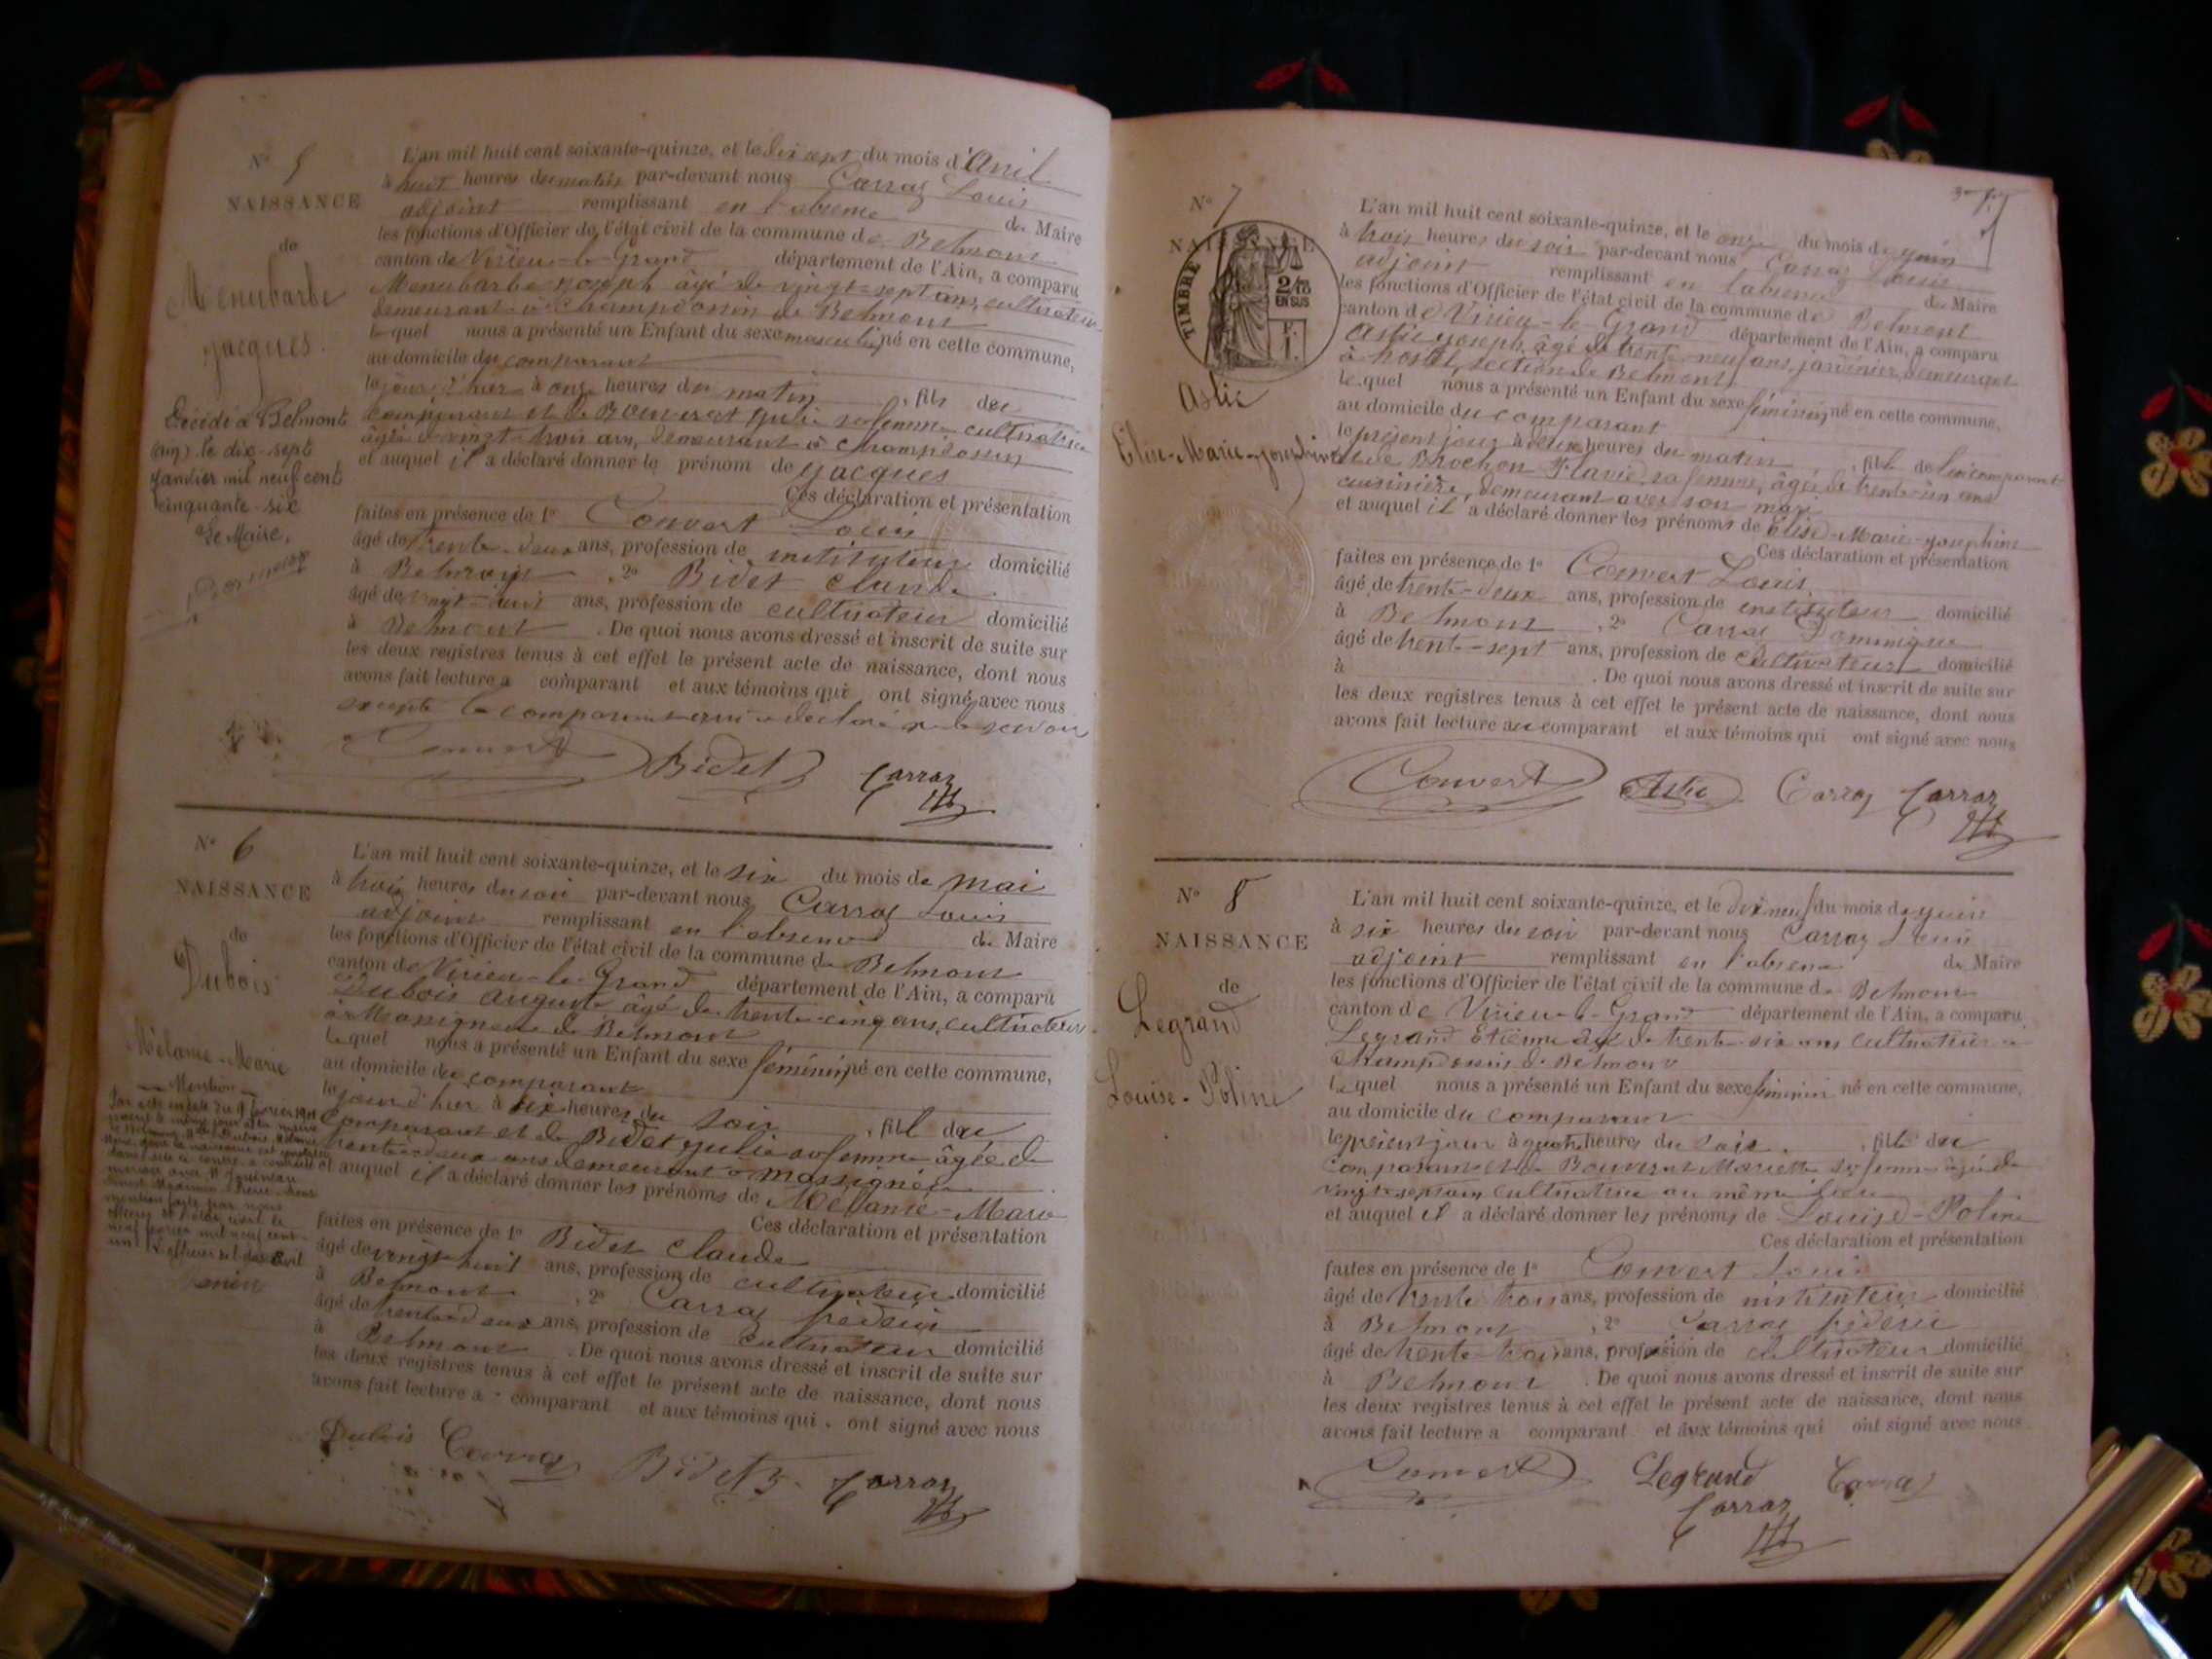 N° 5
NAISSANCE
de
Menubarbe
Jacques.
Décédé à Belmont
(Ain) le dix-sept
Janvier mil neuf cent
cinquante-six
Le Maire,
L'an mil huit cent soixante-quinze, et le dix sept du mois d'Avril
à huit heures du matin par-devant nous Carraz Louis
adjoint remplissant en l'absence du Maire
les fonctions d'Officier de l'état civil de la commune de Belmont
canton de Virieu-le-Grand département de l'Ain, a comparu
Menubarbe Joseph âgé de vingt-sept ans, cultivateur
demeurant à Champdossin de Belmont
lequel nous a présenté un Enfant du sexe masculin né en cette commune,
au domicile du comparant
le jour d'hier à onze heures du matin, fils du
comparant et de Bouverat Julie sa femme cultivatrice
âgée de vingt-trois ans, demeurant à Champdossin
et auquel il a déclaré donner le prénom de Jacques
Ces déclaration et présentation
faites en présence de 1° Convert Louis
âgé de trente-deux ans, profession de instituteur domicilié
à Belmont, 2° Bidet Claude
âgé de vingt-huit ans, profession de cultivateur domicilié
à Belmont. De quoi nous avons dressé et inscrit de suite sur
les deux registres tenus à cet effet le présent acte de naissance, dont nous
avons fait lecture a comparant et aux témoins qui ont signé avec nous
excepté le comparant qui a déclaré ne le savoir
Convert Bidet Carraz
N° 6
NAISSANCE
de
Dubois
Mélanie-Marie
Mention
L'an mil huit cent soixante-quinze, et le six du mois de mai
à trois heures du soir par-devant nous Carraz Louis
adjoint remplissant en l'absence du Maire
les fonctions d'Officier de l'état civil de la commune de Belmont
canton de Virieu-le-Grand département de l'Ain, a comparu
Dubois Auguste âgé de trente-cinq ans, cultivateur
à Massignieu de Belmont
lequel nous a présenté un Enfant du sexe féminin né en cette commune,
au domicile du comparant
le jour d'hier à six heures du soir, fille du
comparant et de Bidet Julie sa femme âgée de
trente-deux ans demeurant à Massignieu
et auquel il a déclaré donner les prénoms de Mélanie-Marie
Ces déclaration et présentation
faites en présence de 1° Bidet Claude
âgé de vingt huit ans, profession de cultivateur domicilié
à Belmont, 2° Carraz fédéric
âgé de trente-deux ans, profession de cultivateur domicilié
à Belmont. De quoi nous avons dressé et inscrit de suite sur
les deux registres tenus à cet effet le présent acte de naissance, dont nous
avons fait lecture a comparant et aux témoins qui ont signé avec nous
Dubois Carraz Bidet Carraz
N° 7
NAISSANCE
TIMBRE
2/10
EN SUS
Aslie
Elise-Marie-Josephine
L'an mil huit cent soixante-quinze, et le onze du mois de juin
à trois heures du soir par-devant nous Carraz Louis
adjoint remplissant en l'absence du Maire
les fonctions d'Officier de l'état civil de la commune de Belmont
canton de Virieu-le-Grand département de l'Ain, a comparu
Aslie Joseph, âgé de trente-neuf ans, jardinier, demeurant
à hostel, section de Belmont
lequel nous a présenté un Enfant du sexe féminin né en cette commune,
au domicile du comparant
le présent jour à deux heures du matin, fille de lui comparant
et de Brochon Flavie, sa femme, âgée de trente-un ans
cuisinière, demeurant avec son mari
et auquel il a déclaré donner les prénoms de Elise-Marie-Josephine
Ces déclaration et présentation
faites en présence de 1° Convert Louis,
âgé de trente-deux ans, profession de instituteur domicilié
à Belmont, 2° Carraz Dominique
âgé de trente-sept ans, profession de cultivateur domicilié
à . De quoi nous avons dressé et inscrit de suite sur
les deux registres tenus à cet effet le présent acte de naissance, dont nous
avons fait lecture au comparant et aux témoins qui ont signé avec nous
Convert Aslie Carraz Carraz
N° 8
NAISSANCE
de
Legrand
Louise-Poline
L'an mil huit cent soixante-quinze, et le dix neuf du mois de juin
à six heures du soir par-devant nous Carraz Louis
adjoint remplissant en l'absence du Maire
les fonctions d'Officier de l'état civil de la commune de Belmont
canton de Virieu-le-Grand département de l'Ain, a comparu
Legrand Etienne âgé de trente-six ans cultivateur à
Champdossin de Belmont
lequel nous a présenté un Enfant du sexe féminin né en cette commune,
au domicile du comparant
le présent jour à quatre heures du soir, fille du
comparant et de Bouverat Mariette sa femme âgée de
vingt-sept ans cultivatrice au même lieu
et auquel il a déclaré donner les prénoms de Louise-Poline
Ces déclaration et présentation
faites en présence de 1° Convert Louis
âgé de trente trois ans, profession de instituteur domicilié
à Belmont, 2° Carraz fédéric
âgé de trente-trois ans, profession de cultivateur domicilié
à Belmont. De quoi nous avons dressé et inscrit de suite sur
les deux registres tenus à cet effet le présent acte de naissance, dont nous
avons fait lecture a comparant et aux témoins qui ont signé avec nous
Convert Legrand Carraz
Carraz